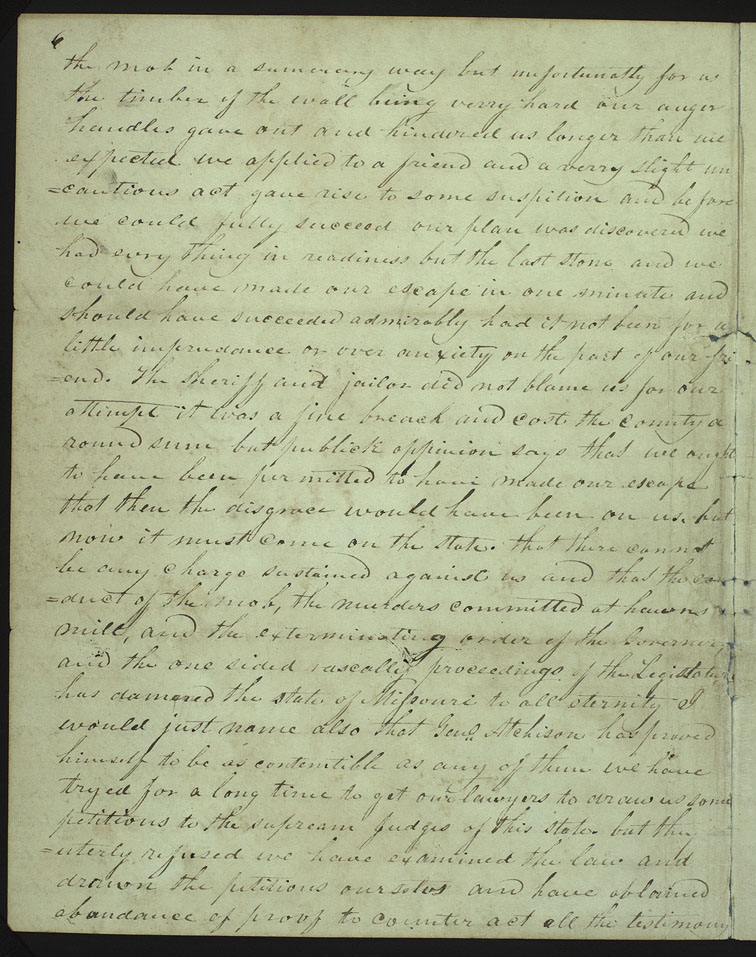 6
the mob in a sumerary way but unfortunatly for us
the timber of the wall being verry hard our auger
handles gave out and hindered us longer than we
expected we applied to a friend and a verry slight un
=cautious act gave rise to some suspition and before
we could fully succeed our plan was discovered we
had evry thing in readiness but the last stone and we
could have made our escape in one minute and
should have succeeded admirably had it not been for a
little imprudance or over anxiety on the part of our fri
=end. The sheriff and jailor did not blame us for our
attempt it was a fine breach and cost the county a
round sum but publick oppinion says that we ought
to have been permitted to have made our escape
that then the disgrace would have been on us. but
now it must come on the state. that there cannot
be any charge sustained against us and that the con
=duct of the mob, the murders committed at hawns
mill, and the exterminating order of the Governer,
and the one sided rascally proceedings of the Legislature
has damned the state of Missouri to all eternity I
would just name also that Genl. Atchison has proved
himself to be as contemtible as any of them we have
tryed for a long time to get our lawyers to draw us some
petitions to the supream Judges of this state. but they
=uterly refused we have examined the law and
drawn the petitions ourselvs and have obtained
abundance of proof to counter act all the testimony